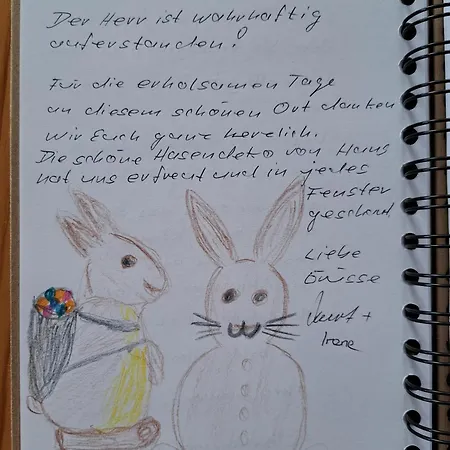 Der Herr ist wahrhaftig
auferstanden!
Für die erholsamen Tage
an diesem schönen Ort danken
wir Euch ganz herzlich.
Die schöne Hasendeko von Hans
hat uns erfreut und in jedes
Fenster
geschaut
Liebe
Grüsse
+
Irene